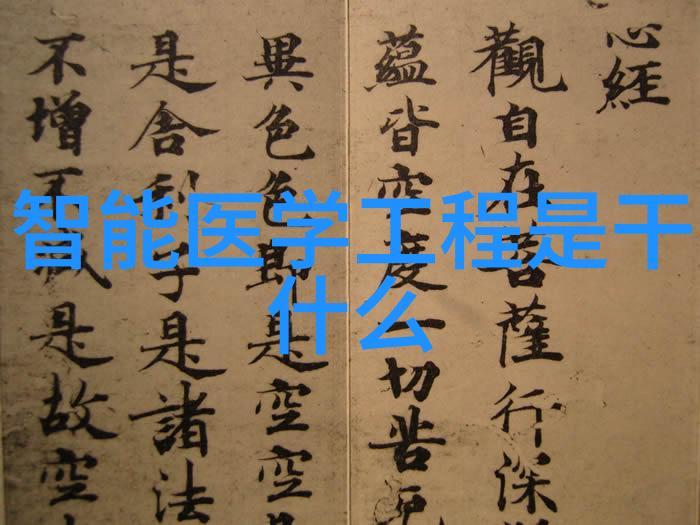 智能医学工程是干
什么
心經
觀自在菩薩行深
蘊皆空度一切苦厄
異色色即是空空
是舍利子是諸法
不增不減是故空